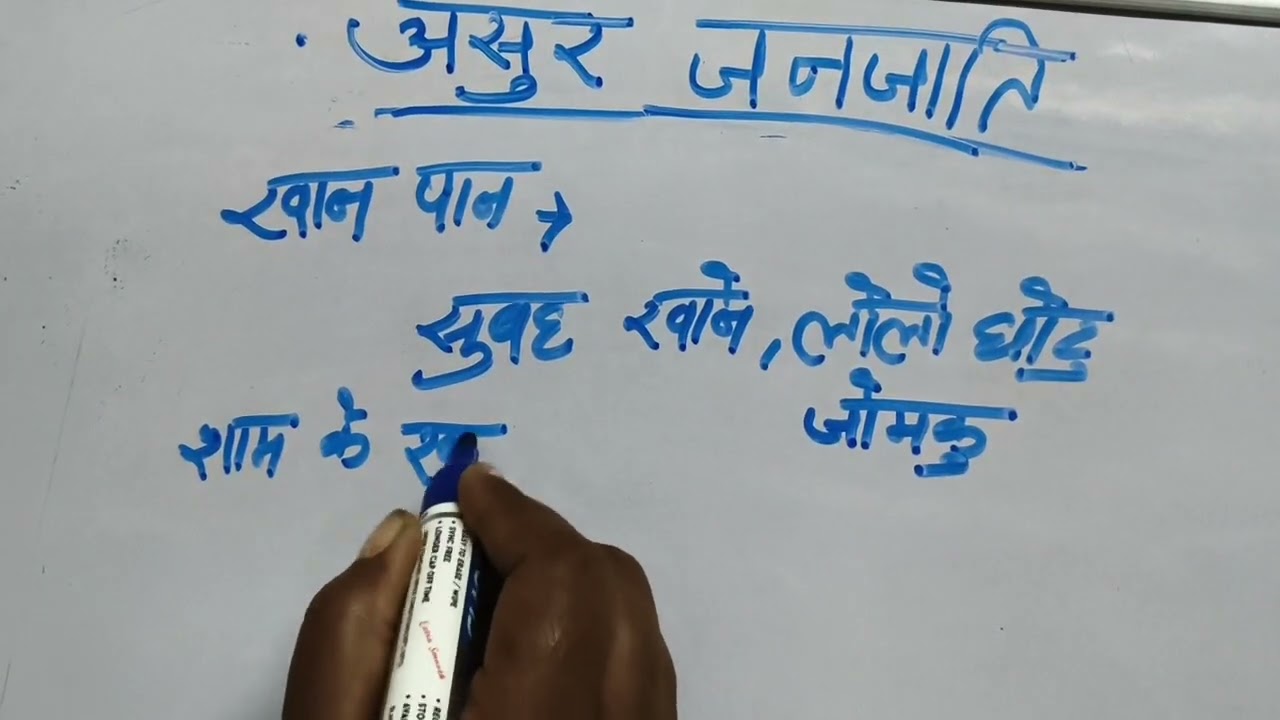 असुर जनजाति
खान पान →
सुबह खाने, लोलो घोटु
जोमकु
शाम के
EASY TO ERASE / WIPE
SYNC FREE
LONGER CAP OFF TIME